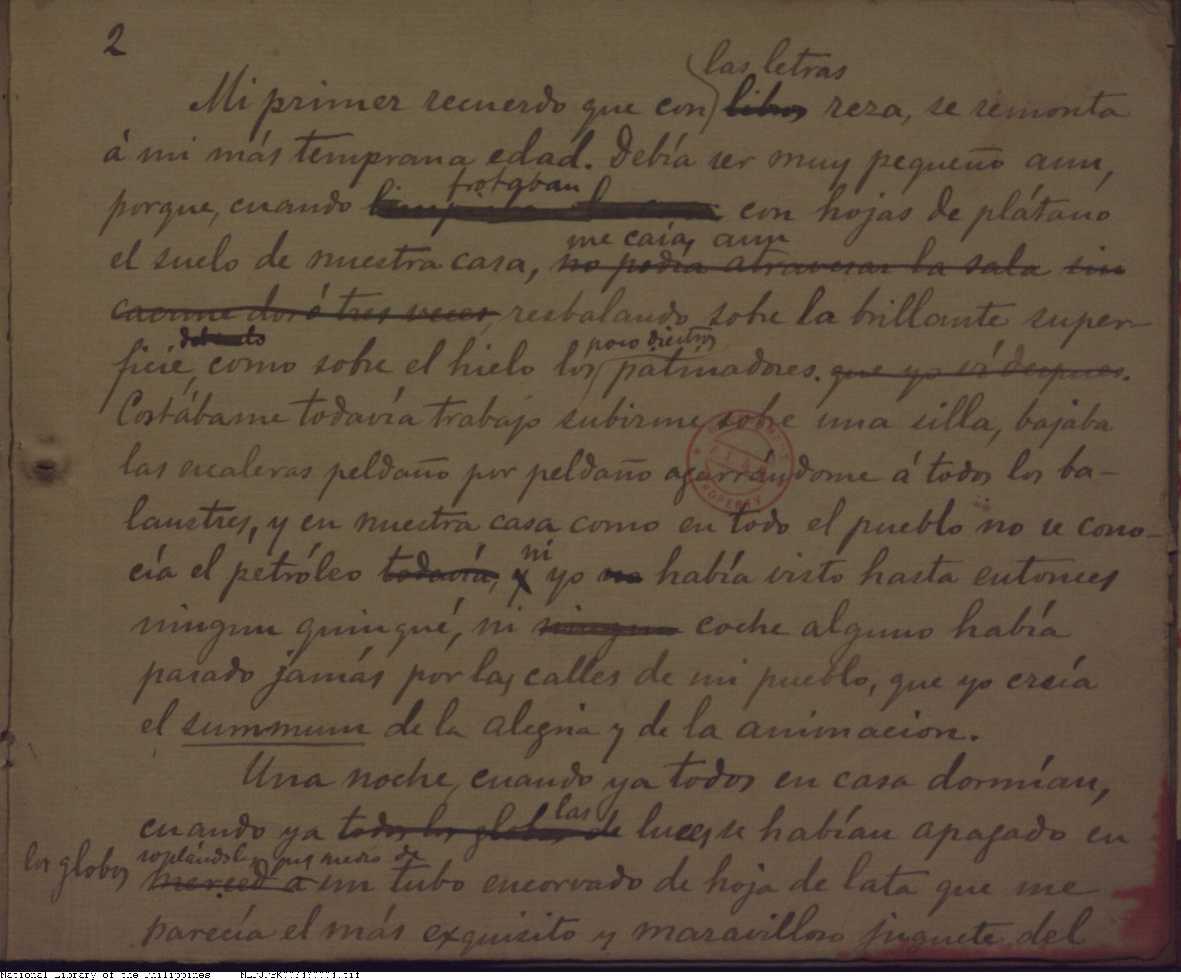 2
las letras
Mi primer recuerdo que con libros reza, se remonta
á mi más temprana edad. Debía ser muy pequeño aun,
frotaban
porque, cuando con hojas de plátano
me caía, aun
el suelo de nuestra casa, no podía atravesar la sala sin
caerme dos ó tres veces, resbalando sobre la brillante super-
poco diestros
ficie, como sobre el hielo los patinadores. que yo ví despues.
Costábame todavía trabajo subirme sobre una silla, bajaba
las escaleras peldaño por peldaño agarrándome á todos los ba-
laustres, y en nuestra casa como en todo el pueblo no se cono-
ni
cía el petróleo todavía, y yo no había visto hasta entonces
ningun quinqué, ni ningun coche alguno había
pasado jamás por las calles de mi pueblo, que yo creía
el summum de la alegria y de la animacion.
Una noche, cuando ya todos en casa dormían,
las
cuando ya todos los globos de luces se habían apagado en
los globos
soplándolas por medio de
merced a un tubo encorvado de hoja de lata que me
parecía el más exquisito y maravilloso juguete del
PROPERTY
National Library of the Philippines